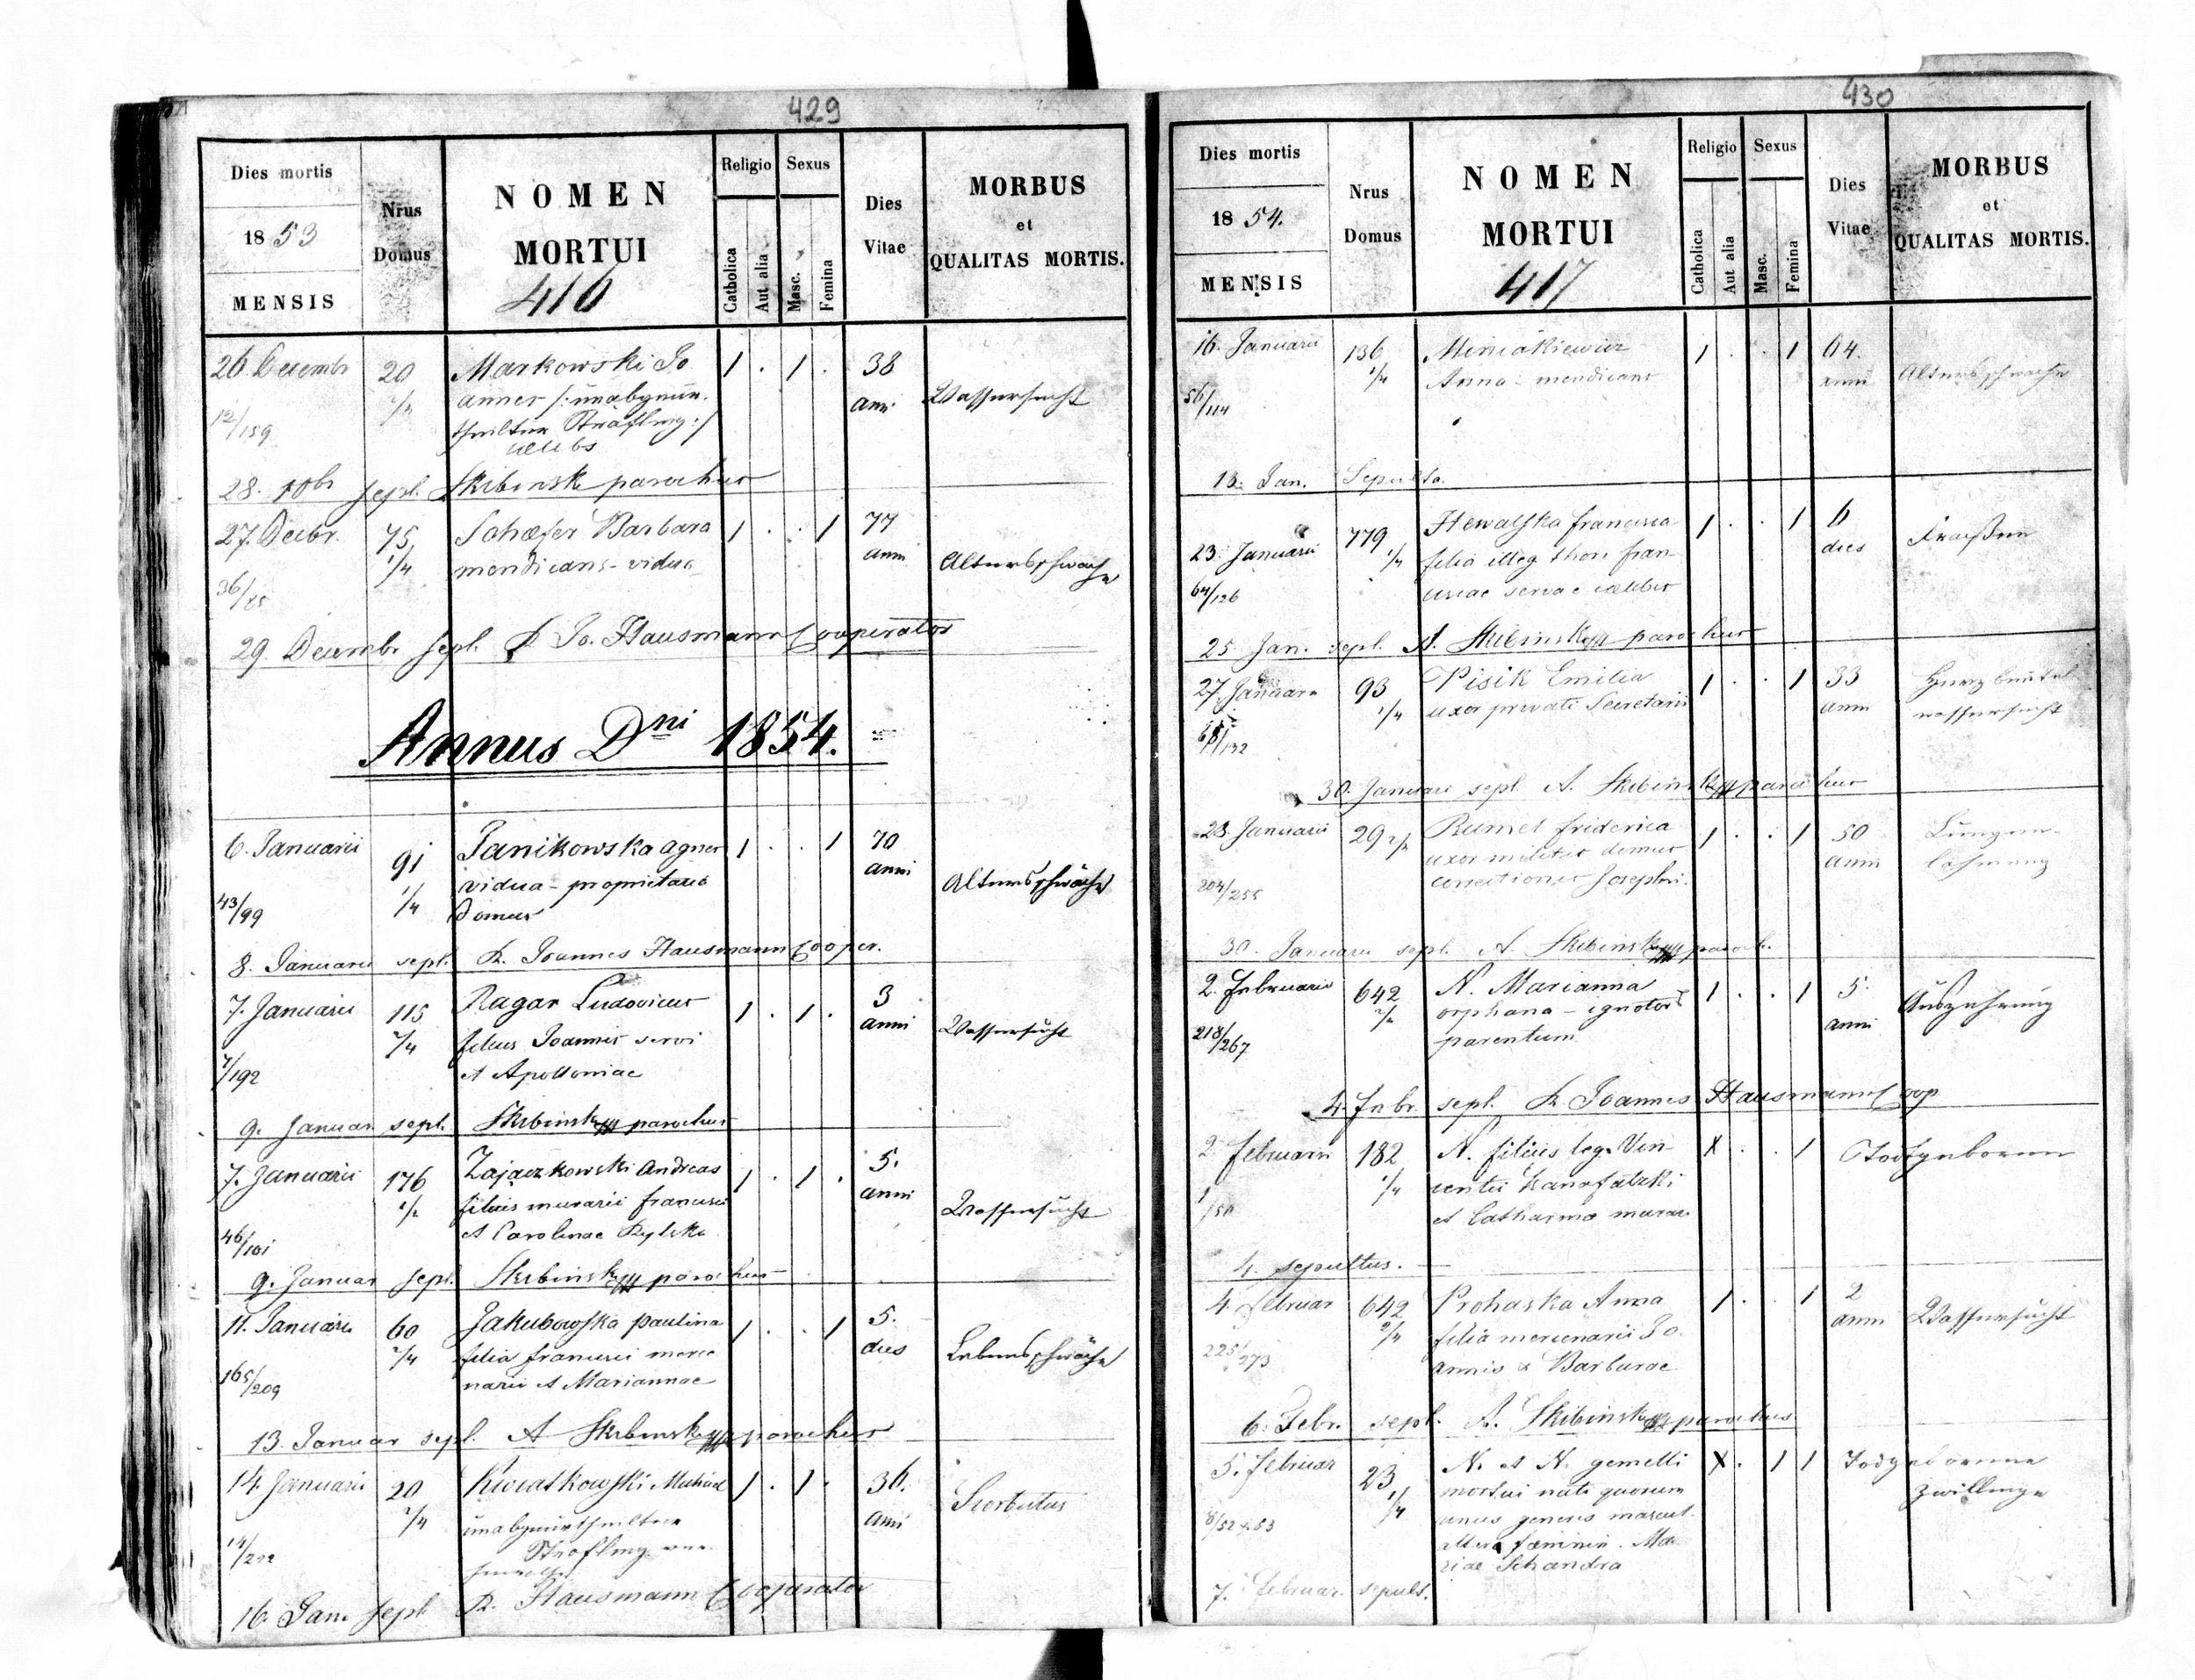 429
Dies mortis
1853
MENSIS
Nrus
Domus
NOMEN
MORTUI
416
Religio
Catholica
Aut alia
Sexus
Masc.
Femina
Dies
Vitae
MORBUS
et
QUALITAS MORTIS.
26 Decembr 20 Markowski Jo 1 . 1 . 38
2/4 annes /: unabgeur: anni Wassersucht
12/159 theilter Sträfling :/
caelebs
28. 10br sepl. Skibinski parochus
27. Decbr. 75 Schaefer Barbara 1 . . 1 77
1/4 mendicans - vidua anni Altersschwäche
36/85
29. Decembr sepl. R Jo. Hausmann Cooperator
Annus Dni 1854.
6. Januarii 91 Janikowska Agnes 1 . . 1 70
1/4 vidua - proprietaria anni Altersschwäche
43/99 domus
8. Januarii sepl. R. Joannes Hausmann Cooper.
7. Januarii 115 Ragan Ludovicus 1 . 1 . 3
2/4 filius Joannis servi anni Wassersucht
7/192 et Apolloniae
9. Januar sepl. Skibinski parochus
7. Januarii 176 Zajączkowski Andreas 1 . 1 . 5.
filius murarii francisci anni Wassersucht
46/101 et Carolinae Rylska
9. Januar sepl. Skibinski parochus
11. Januarii 60 Jakubowska paulina 1 . . 1 5.
2/4 filia francisci merce dies Lebensschwäche
165/209 narii et Mariannae
13. Januar sepl. A Skibinski parochus
14. Januarii 20 Kwiatkowski Michael 1 . 1 . 36.
2/4 unabgeurtheilter anni Scorbutus
14/212 Sträfling
16. Jan. sepl R. Hausmann Cooperator
430
Dies mortis
1854.
MENSIS
Nrus
Domus
NOMEN
MORTUI
417
Religio
Catholica
Aut alia
Sexus
Masc.
Femina
Dies
Vitae
MORBUS
et
QUALITAS MORTIS.
16. Januarii 136 Miniakiewicz 1 . . 1 64.
1/4 Anna mendicans anni Altersschwäche
56/114
18. Jan. Sepulta.
23. Januarii 779 Hewalska francisca 1 . . 1 6
1/4 filia illeg thori fran dies Fraißen
64/126 ciscae servae caelebis
25. Jan. sepl. A. Skibinski parochus
27. Januar 93 Pisik Emilia 1 . . 1 33 Herzbeutel
1/4 uxor privati Secretarii anni wassersucht
/132
30. Januarii sepl A. Skibinski parochus
28. Januarii 29 2/4 Rumel friderica 1 . . 1 50 Lungen-
uxor militis domus anni lähmung
204/255 correctionis Josephi.
30. Januarii sepl. A. Skibinski paroch.
2. Februarii 642 N. Marianna 1 . . 1 5.
2/4 orphana - ignotor anni Auszehrung
218/267 parentum
4. Febr. sepl. R Joannes Hausmann Coop
2 februarii 182 N. filius leg. Vin- X . . 1 Todtgeborner
1/4 centii
1/50 et Catharina
4. sepultus.
4. februar 642 Prohaska Anna 1 . . 1 2
2/4 filia mercenarii Jo anni Wassersucht
225/273 annis & Barbarae
6. Febr. sepl. A. Skibinski parochus
5. februar 23 N. et N. gemelli X . 1 1 Todgeborene
1/4 mortui nati quorum Zwillinge
8/52 & 53 unus generis mascul.
altera feminin. Ma
riae Schandra
7. februar. sepult.